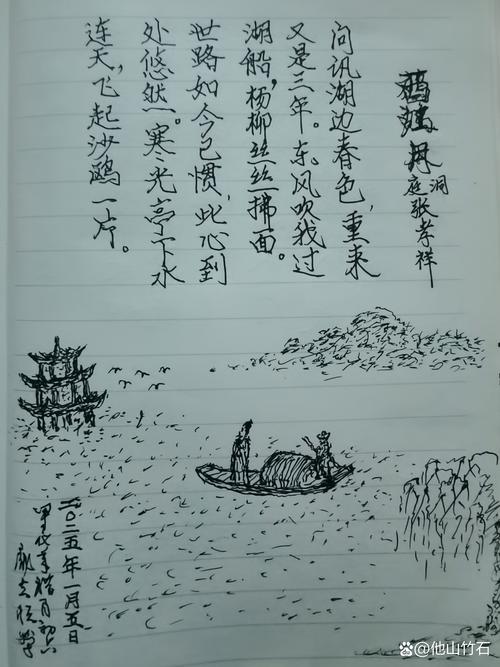 洞
庭张孝祥
问讯湖边春色，重来
又是三年。东风吹我过
湖船，杨柳丝丝拂面。
世路如今已惯，此心到
处悠然。寒光亭下水
连天，飞起沙鸥一片。
二〇二五年一月五日
甲辰年腊月初六
@他山竹石